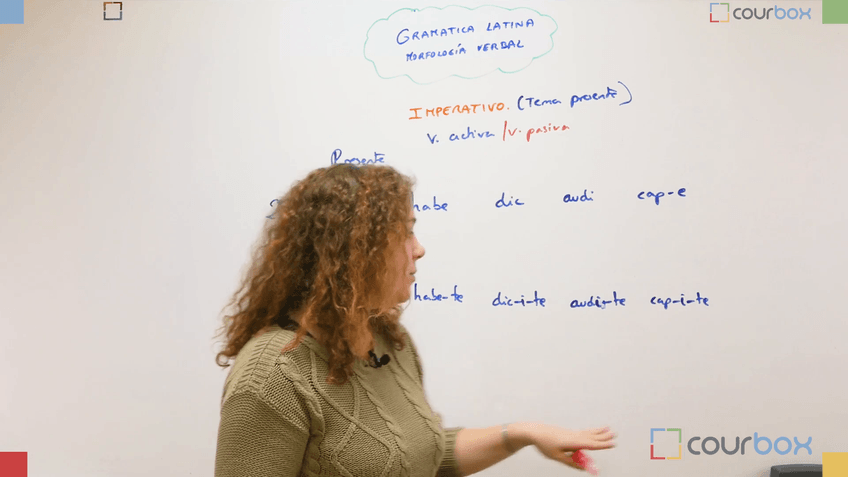 courbox
GRAMATICA LATINA
MORFOLOGÍA VERBAL
IMPERATIVO. (Tema presente)
V. activa / V. pasiva
Presente
habe dic audi cap-e
habe-te dic-i-te audi-te cap-i-te
courbox